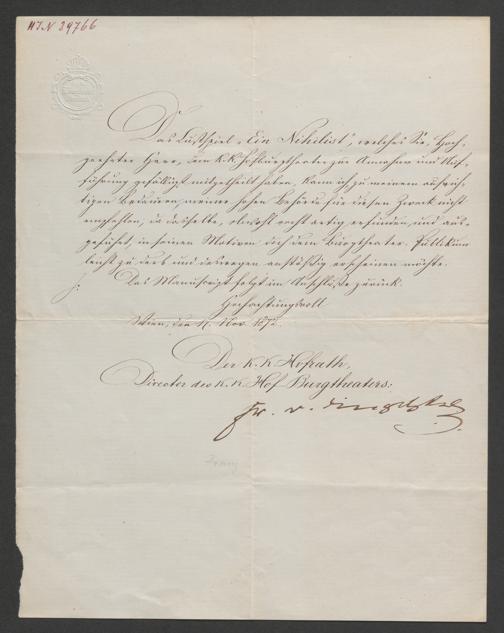 HIN 39766
Das Lustspiel „Ein Nihilist“, welches Sie, Hoch-
geehrter Herr, dem k.k. Hofburgtheater zur Annahme und Auf-
führung gefälligst mitgetheilt haben, kann ich zu meinem aufrich-
tigen Bedauern meiner hohen Behörde für diesen Zweck nicht
empfehlen, da dasselbe, obwohl recht artig erfunden und aus-
geführt, in seinen Motiven doch dem Burgtheater-Publikum
leicht zu derb und deswegen anstößig erscheinen möchte.
Das Manuscript folgt im Anschluße zurück.
Hochachtungsvoll
Wien, den Nov. 1872.
Der k.k. Hofrath,
Director des k.k. Hof-Burgtheaters:
Fr. v. Dingelstedt
Franz